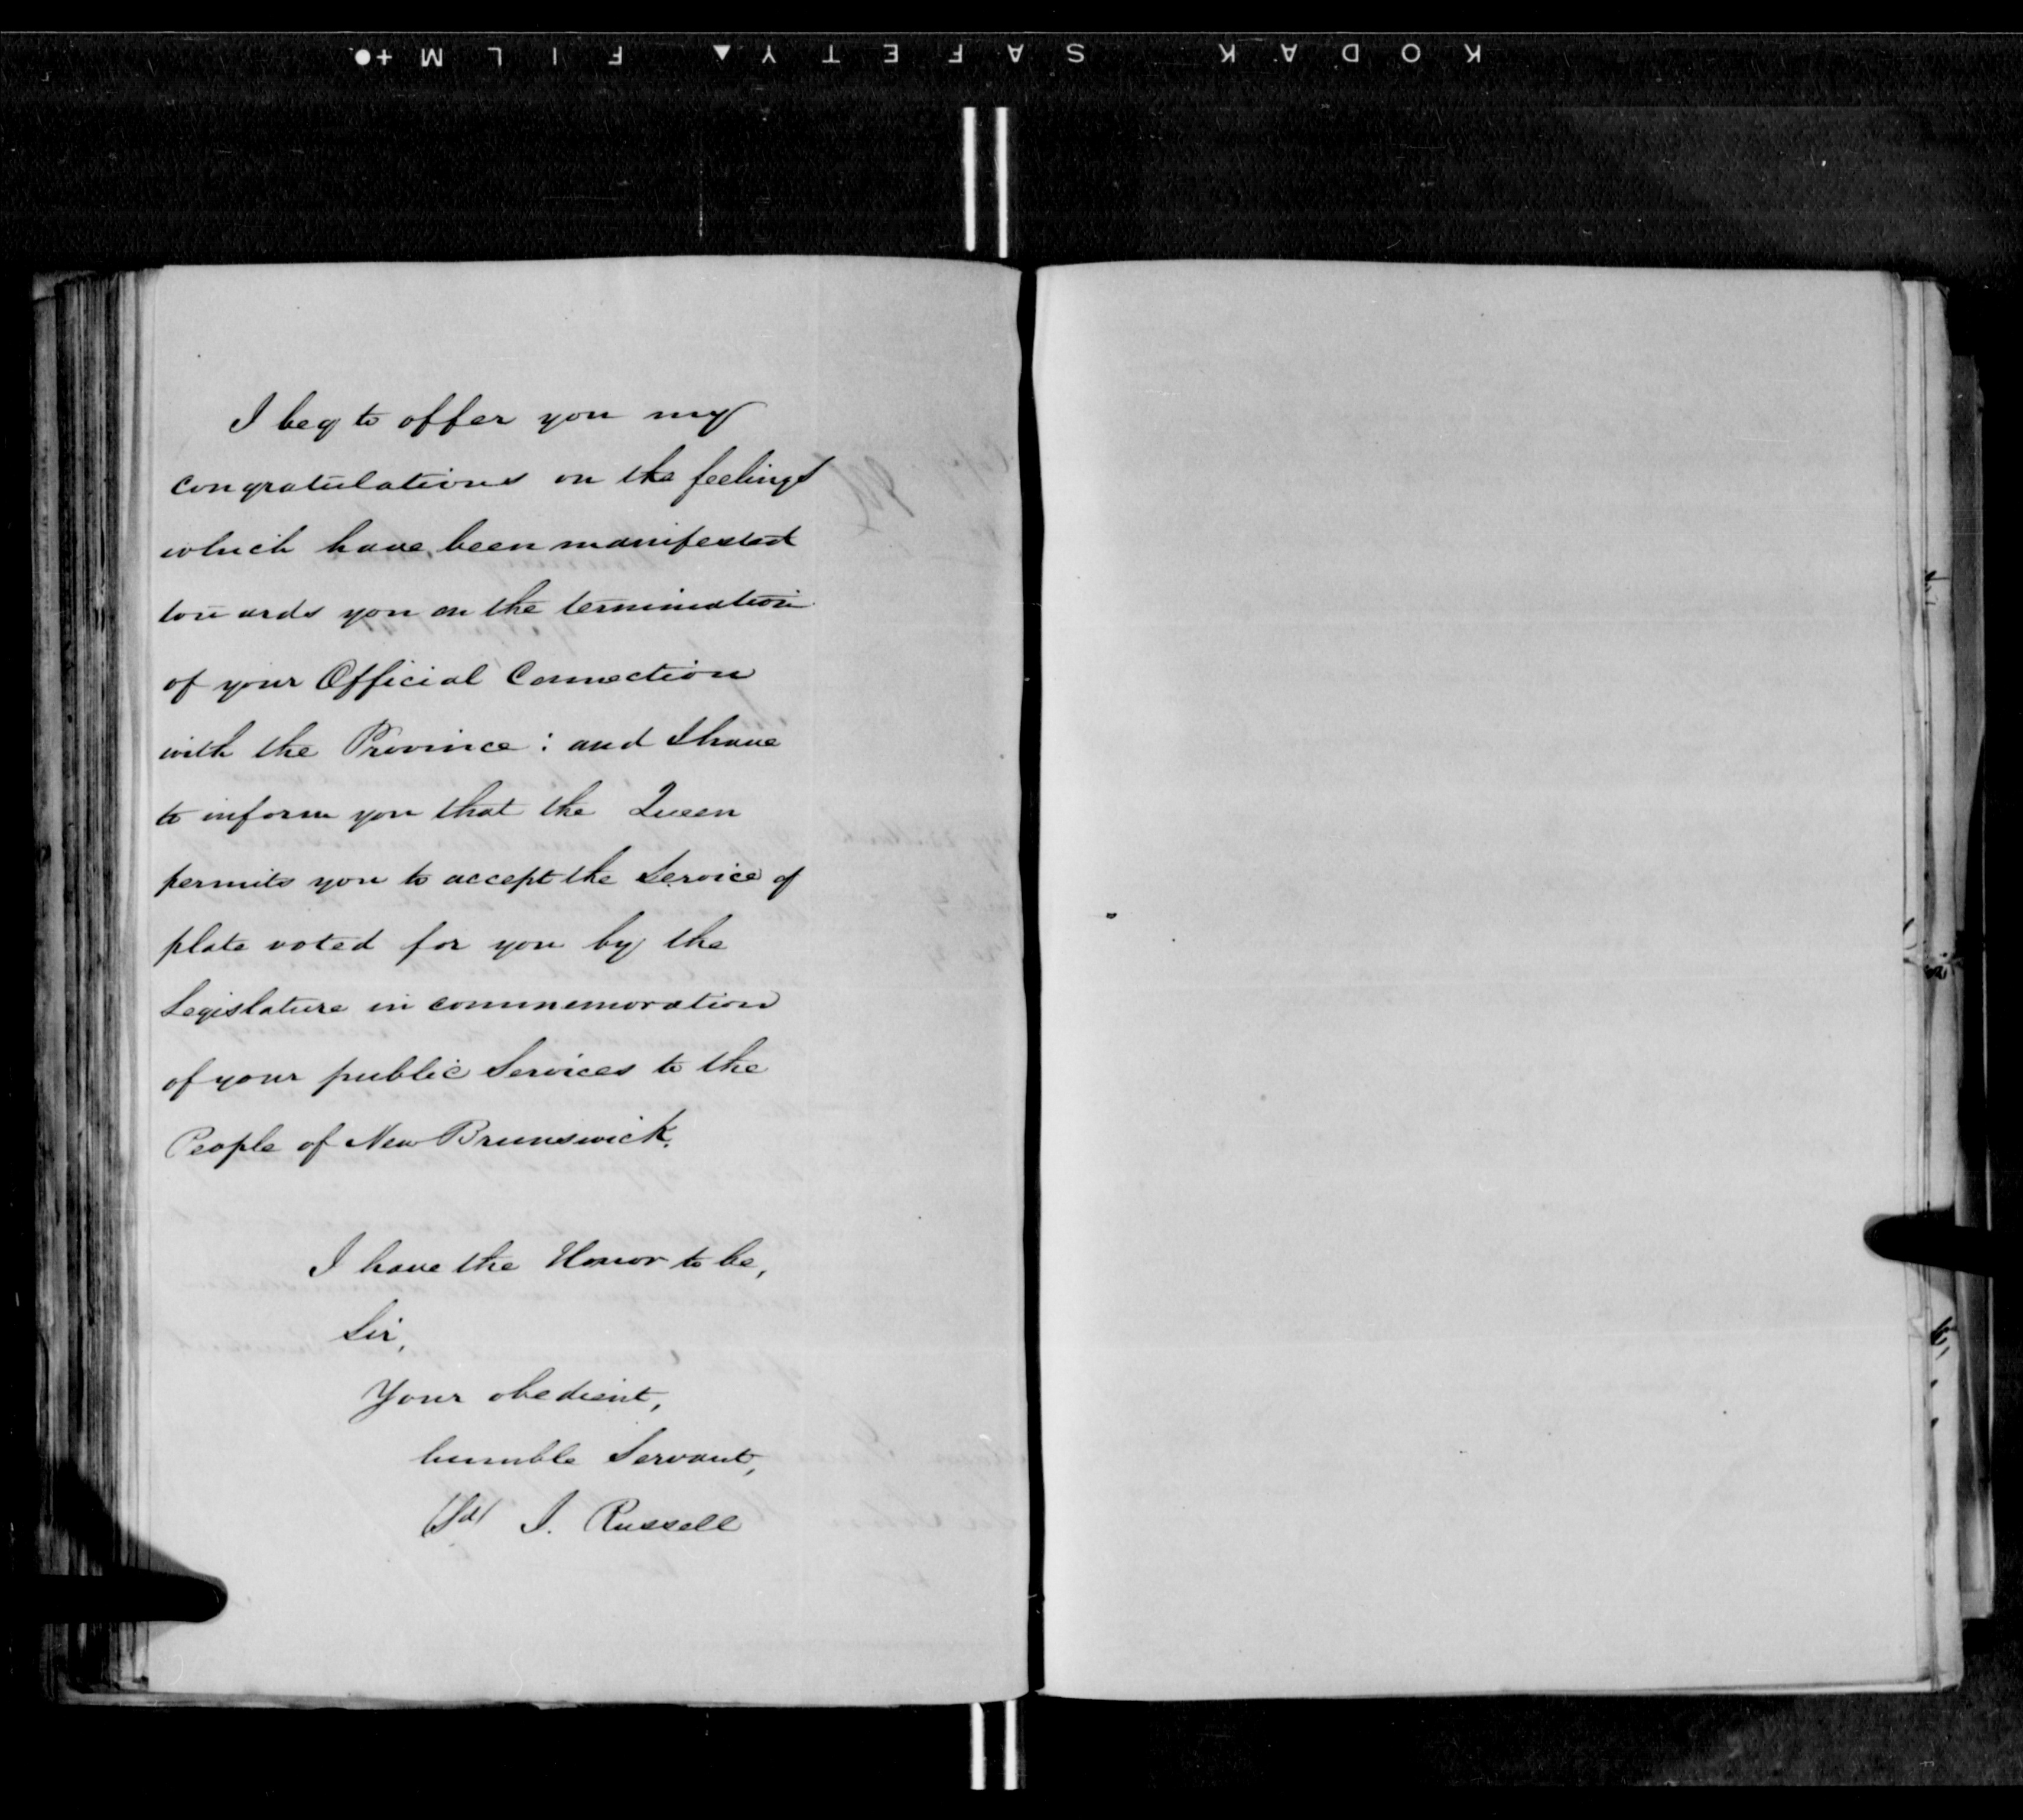 KODAK SAFETY FILM
I beg to offer you my
congratulations on the feelings
which have been manifested
towards you on the termination
of your Official Connection
with the Province: and I have
to inform you that the Queen
permits you to accept the Service of
plate voted for you by the
Legislature in commemoration
of your public Services to the
People of New Brunswick.
I have the Honor to be,
Sir,
Your obedient,
humble Servant,
(Sd) J. Russell